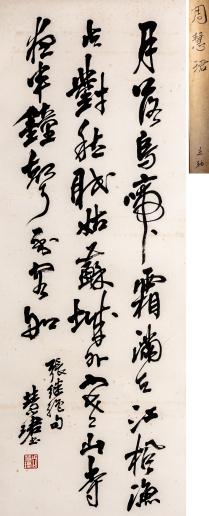 月落烏啼霜滿天江楓漁
火對愁眠姑蘇城外寒山寺
夜半鐘聲到客船
張繼絕句
慧珺書
周慧珺
立軸